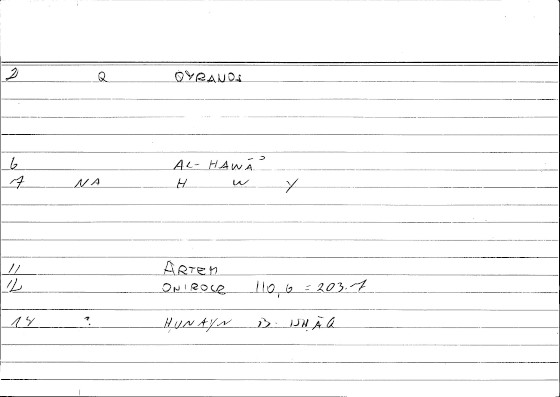 2 Q OYRANOS
6 AL-HAWĀʾ
7 NA H W Y
11 ARTEM
12 ONIROCR 110,6 = 203.7
14 ? HUNAYN B. ISHĀQ